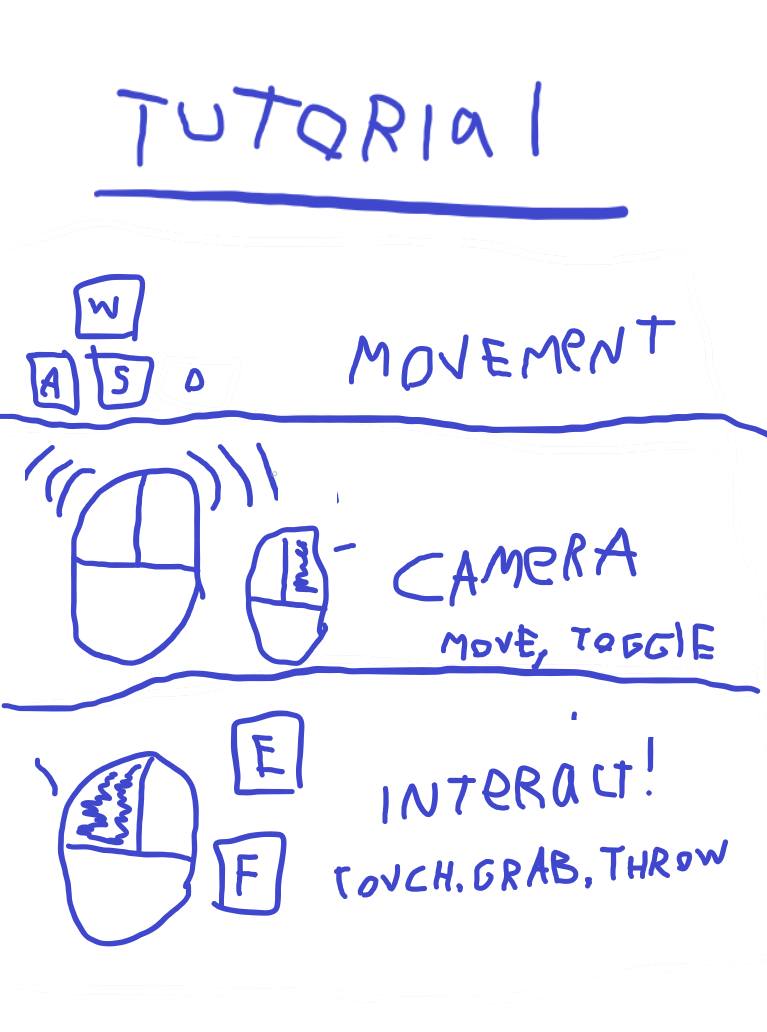 TUTORIal
W
A S D
MOVEMeNT
CAMeRA
MOVE, TOGGlE
E
INTeRacT!
F
TOUCH, GRAB, THROW